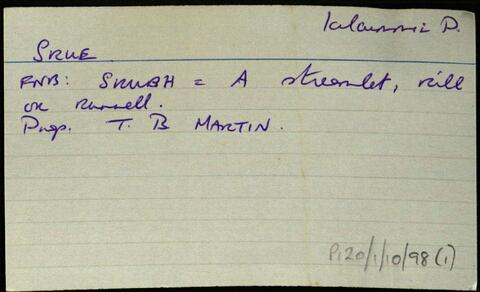 Kilcummin P.
SRUE
FNB: SRUGH = A streamlet, rill
or runnell.
Prop. T. B MARTIN.
P120/1/10/98(1)